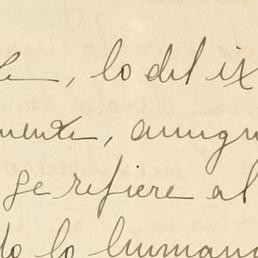 , lo del ix
mente, aunqu
se refiere al
do lo humano